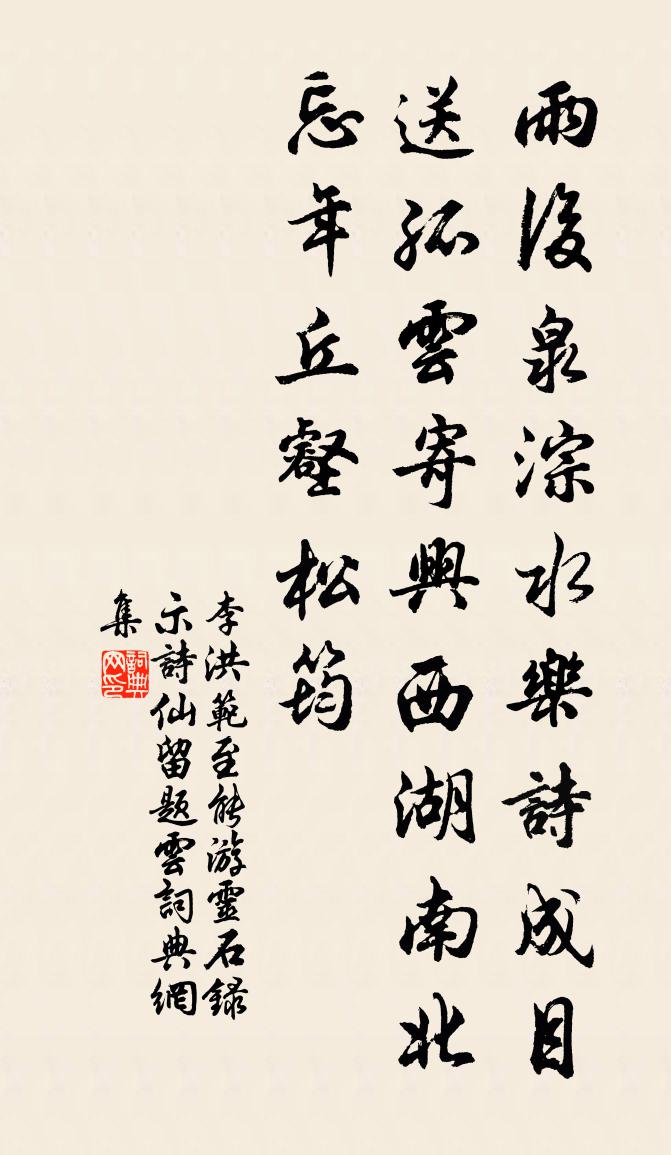 雨後泉淙水樂詩成目
送孤雲寄興西湖南北
忘年丘壑松筠
李洪範至能游靈石錄
示詩仙留題雲詞典網
集
詞典
网印